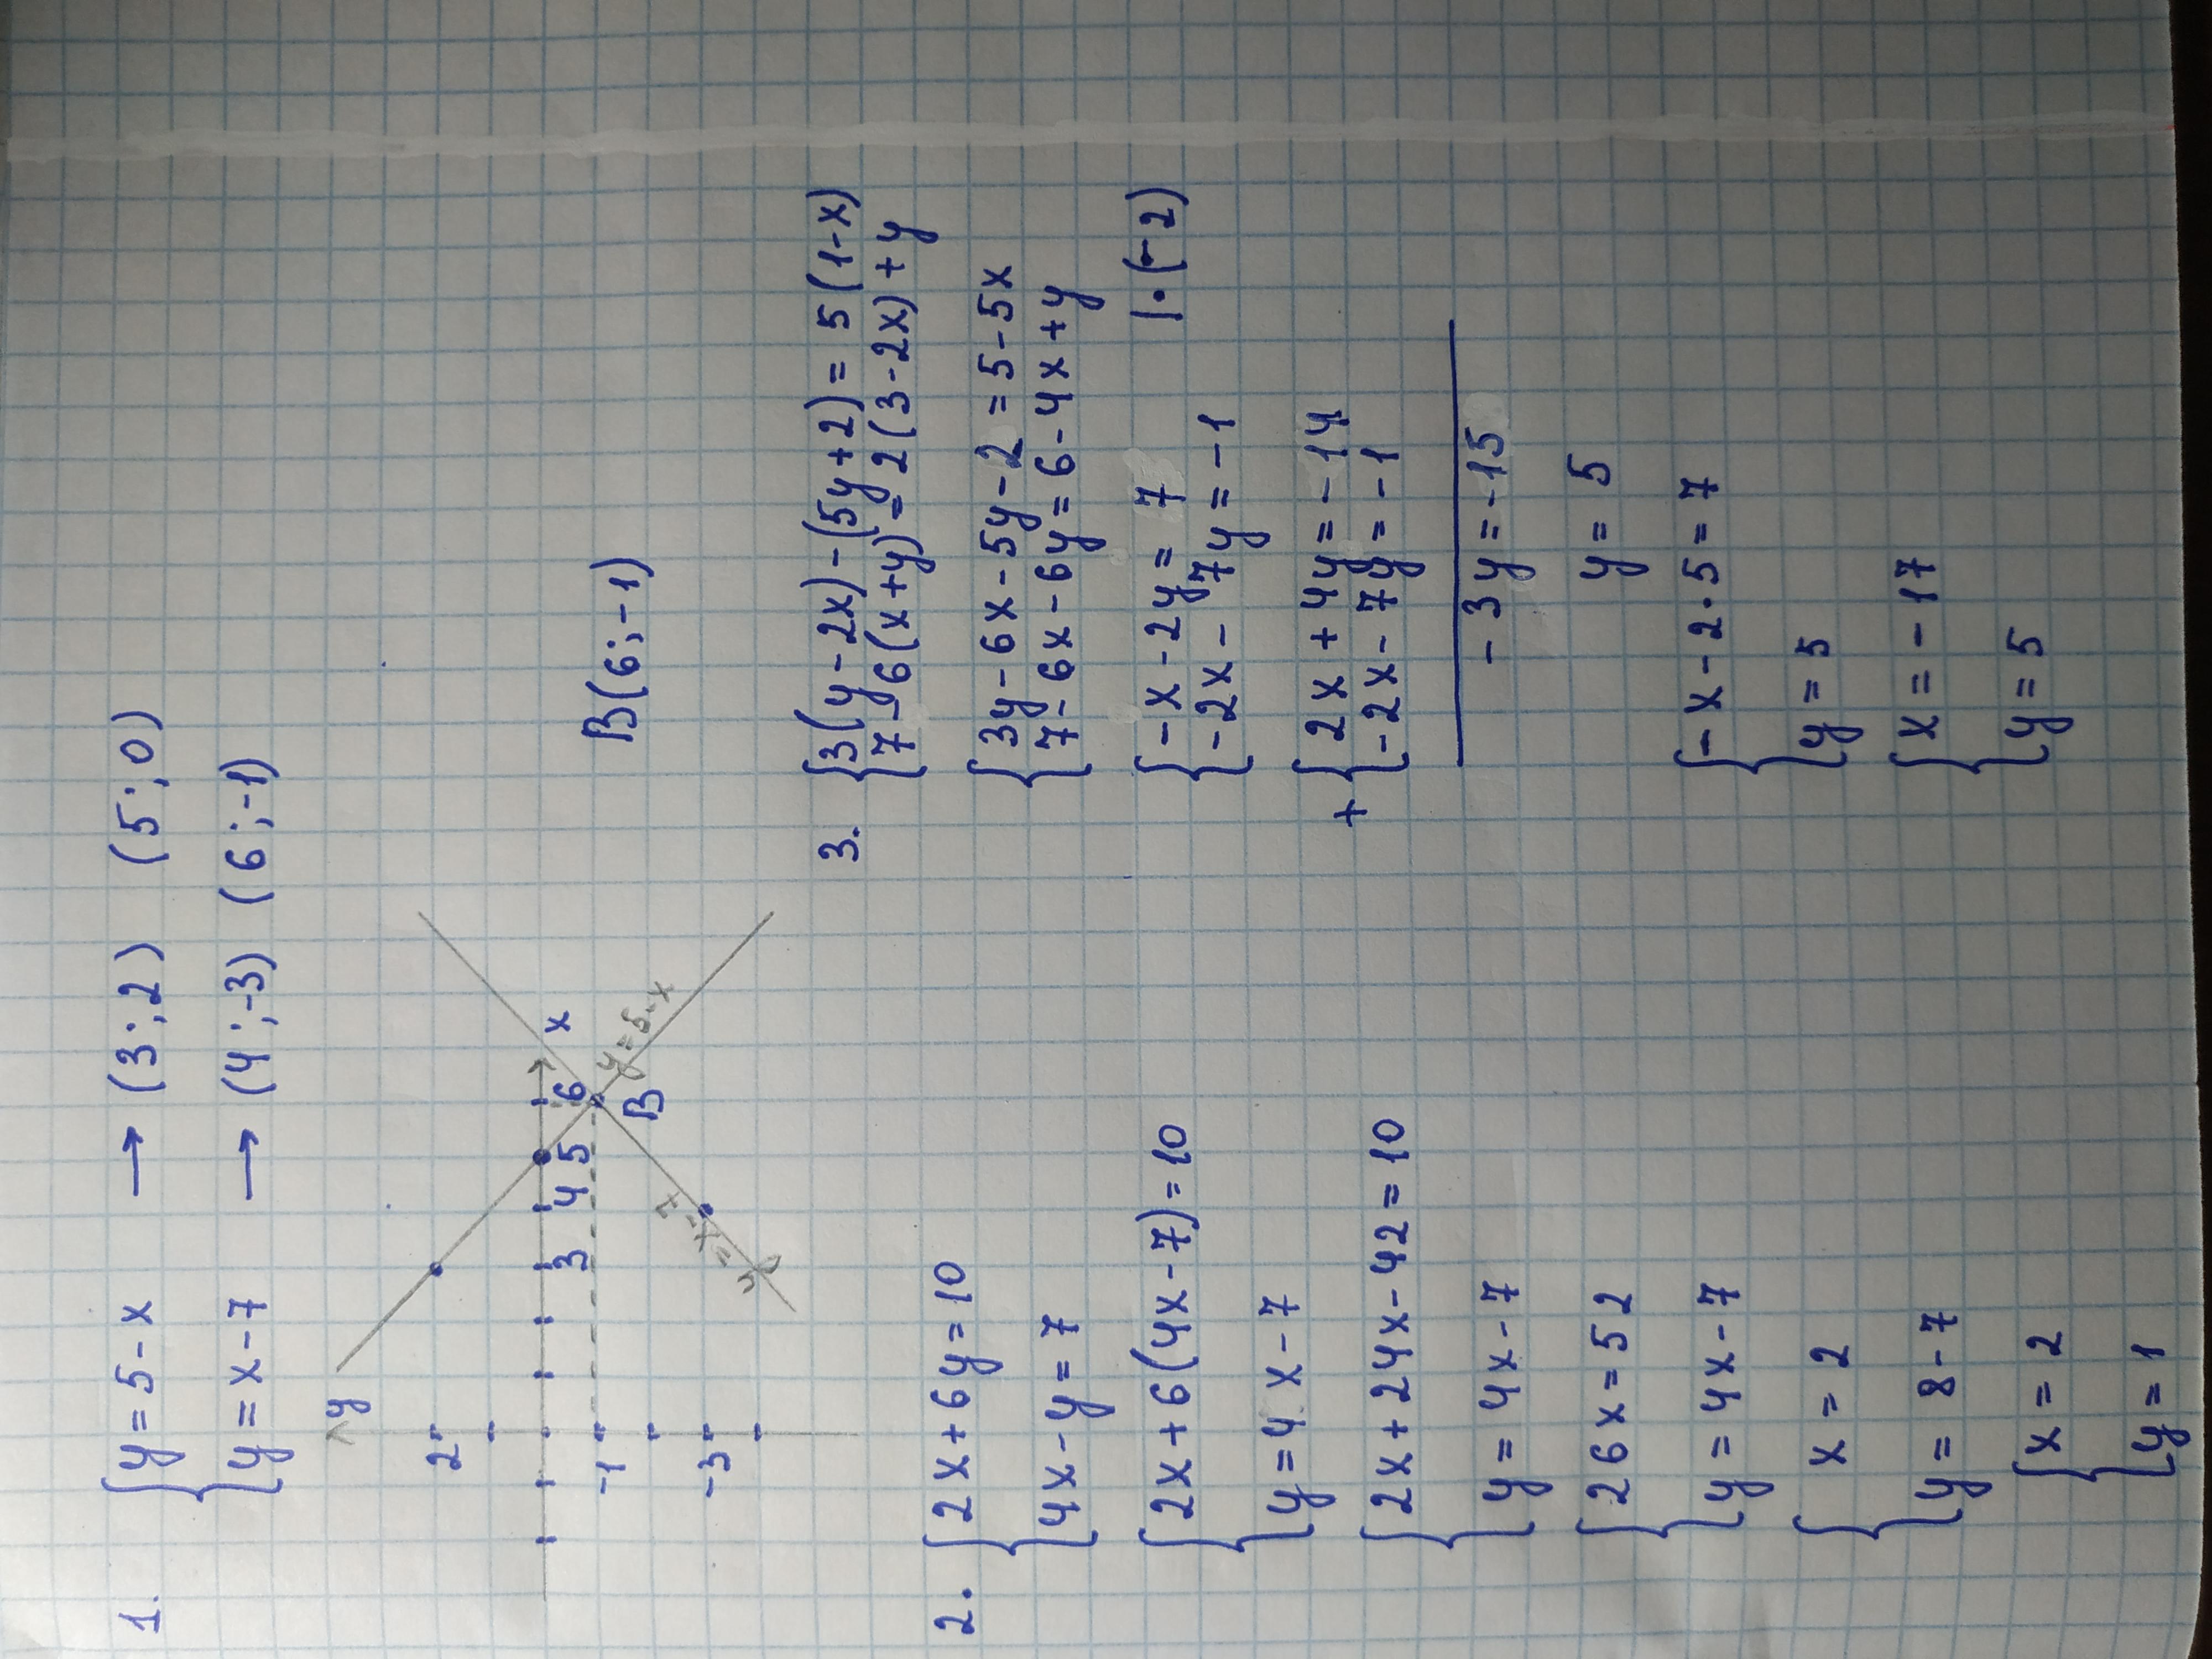 1. { y = 5 - x → (3 ; 2) (5 ; 0)
{ y = x - 7 → (4 ; -3) (6 ; -1)
y
2
-1
-3
3 4 5 6
x
B
y = 5 - x
y = x - 7
B (6 ; -1)
2. { 2x + 6y = 10
{ 4x - y = 7
{ 2x + 6(4x - 7) = 10
{ y = 4x - 7
{ 2x + 24x - 42 = 10
{ y = 4x - 7
{ 26x = 52
{ y = 4x - 7
{ x = 2
{ y = 8 - 7
{ x = 2
{ y = 1
3. { 3(y - 2x) - (5y + 2) = 5(1 - x)
{ 7 - 6(x + y) = 2(3 - 2x) + y
{ 3y - 6x - 5y - 2 = 5 - 5x
{ 7 - 6x - 6y = 6 - 4x + y
{ -x - 2y = 7 | · (-2)
{ -2x - 7y = -1
+ { 2x + 4y = -14
{ -2x - 7y = -1
- 3y = -15
y = 5
{ -x - 2 · 5 = 7
{ y = 5
{ x = -17
{ y = 5